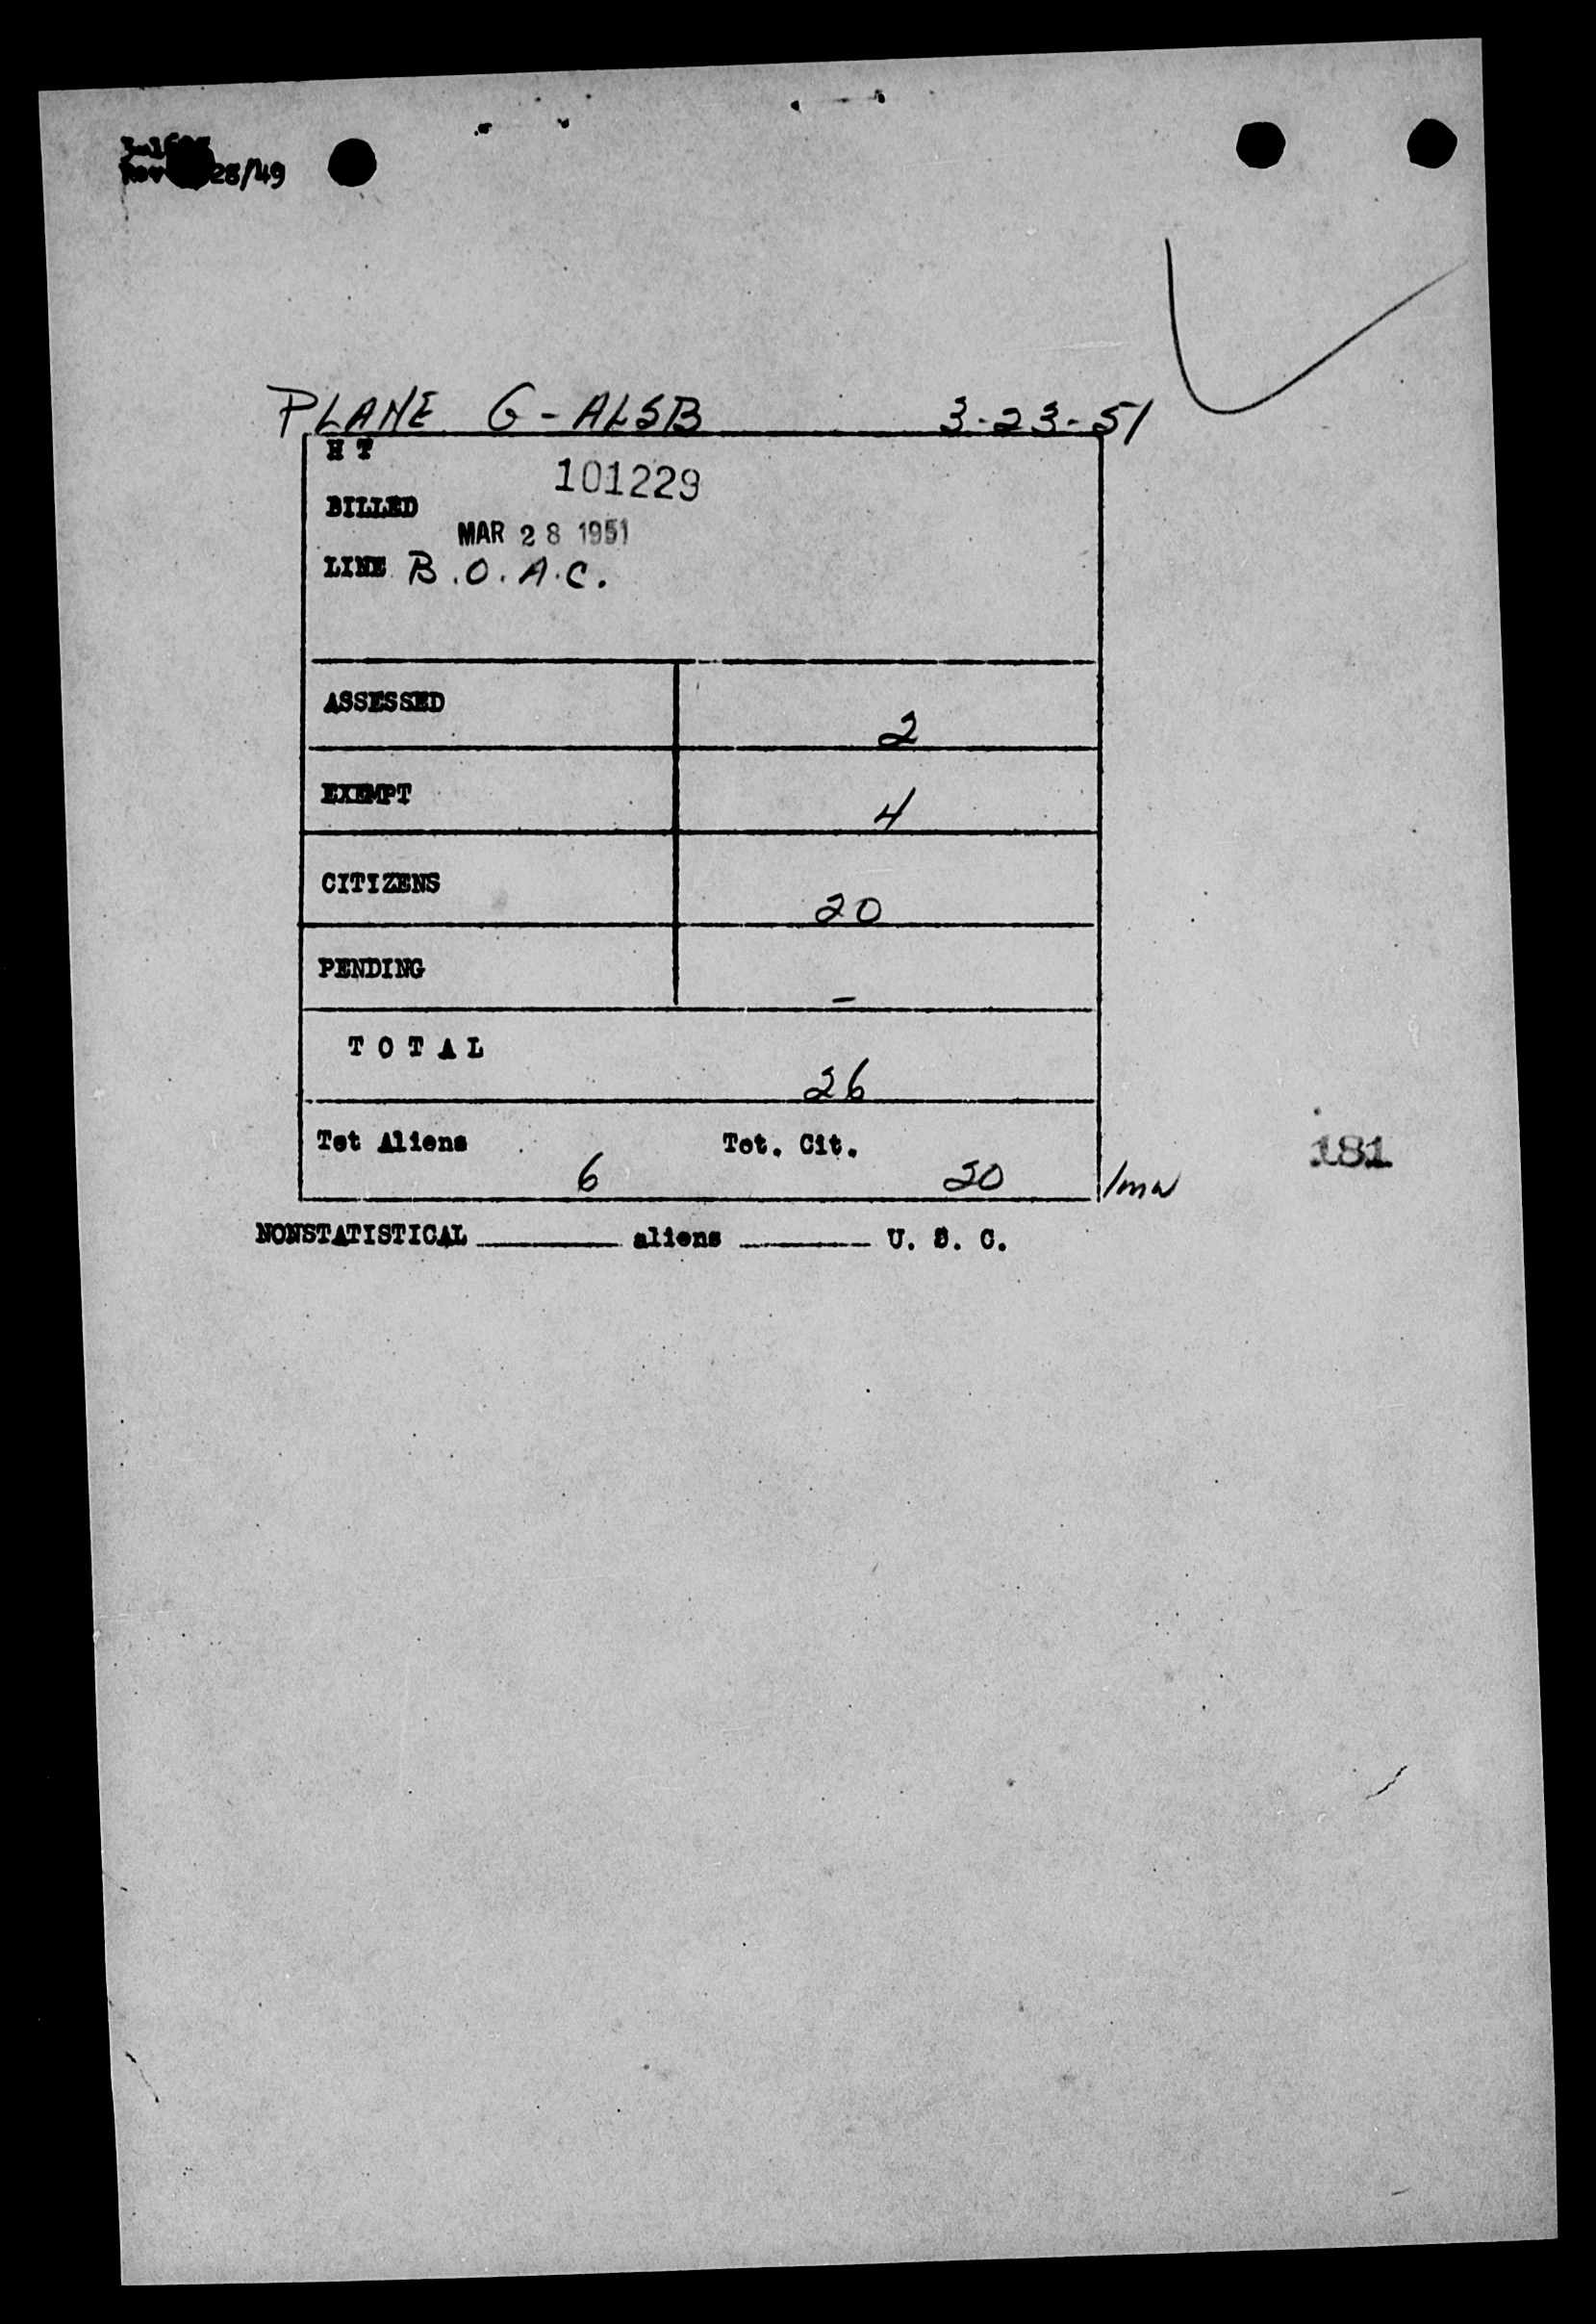 28/49
PLANE G-ALSB 3-23-51
H T
101229
BILLED
MAR 28 1951
LINE B.O.A.C.
ASSESSED 2
EXEMPT 4
CITIZENS 20
PENDING –
T O T A L 26
Tot Aliens 6 Tot. Cit. 20
181
NONSTATISTICAL ______ aliens ______ U. S. C.